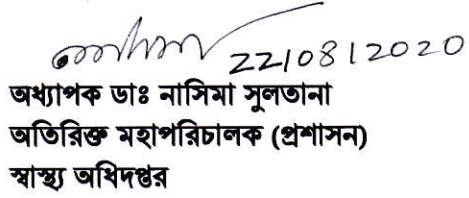 22/08/2020
অধ্যাপক ডাঃ নাসিমা সুলতানা
অতিরিক্ত মহাপরিচালক (প্রশাসন)
স্বাস্থ্য অধিদপ্তর